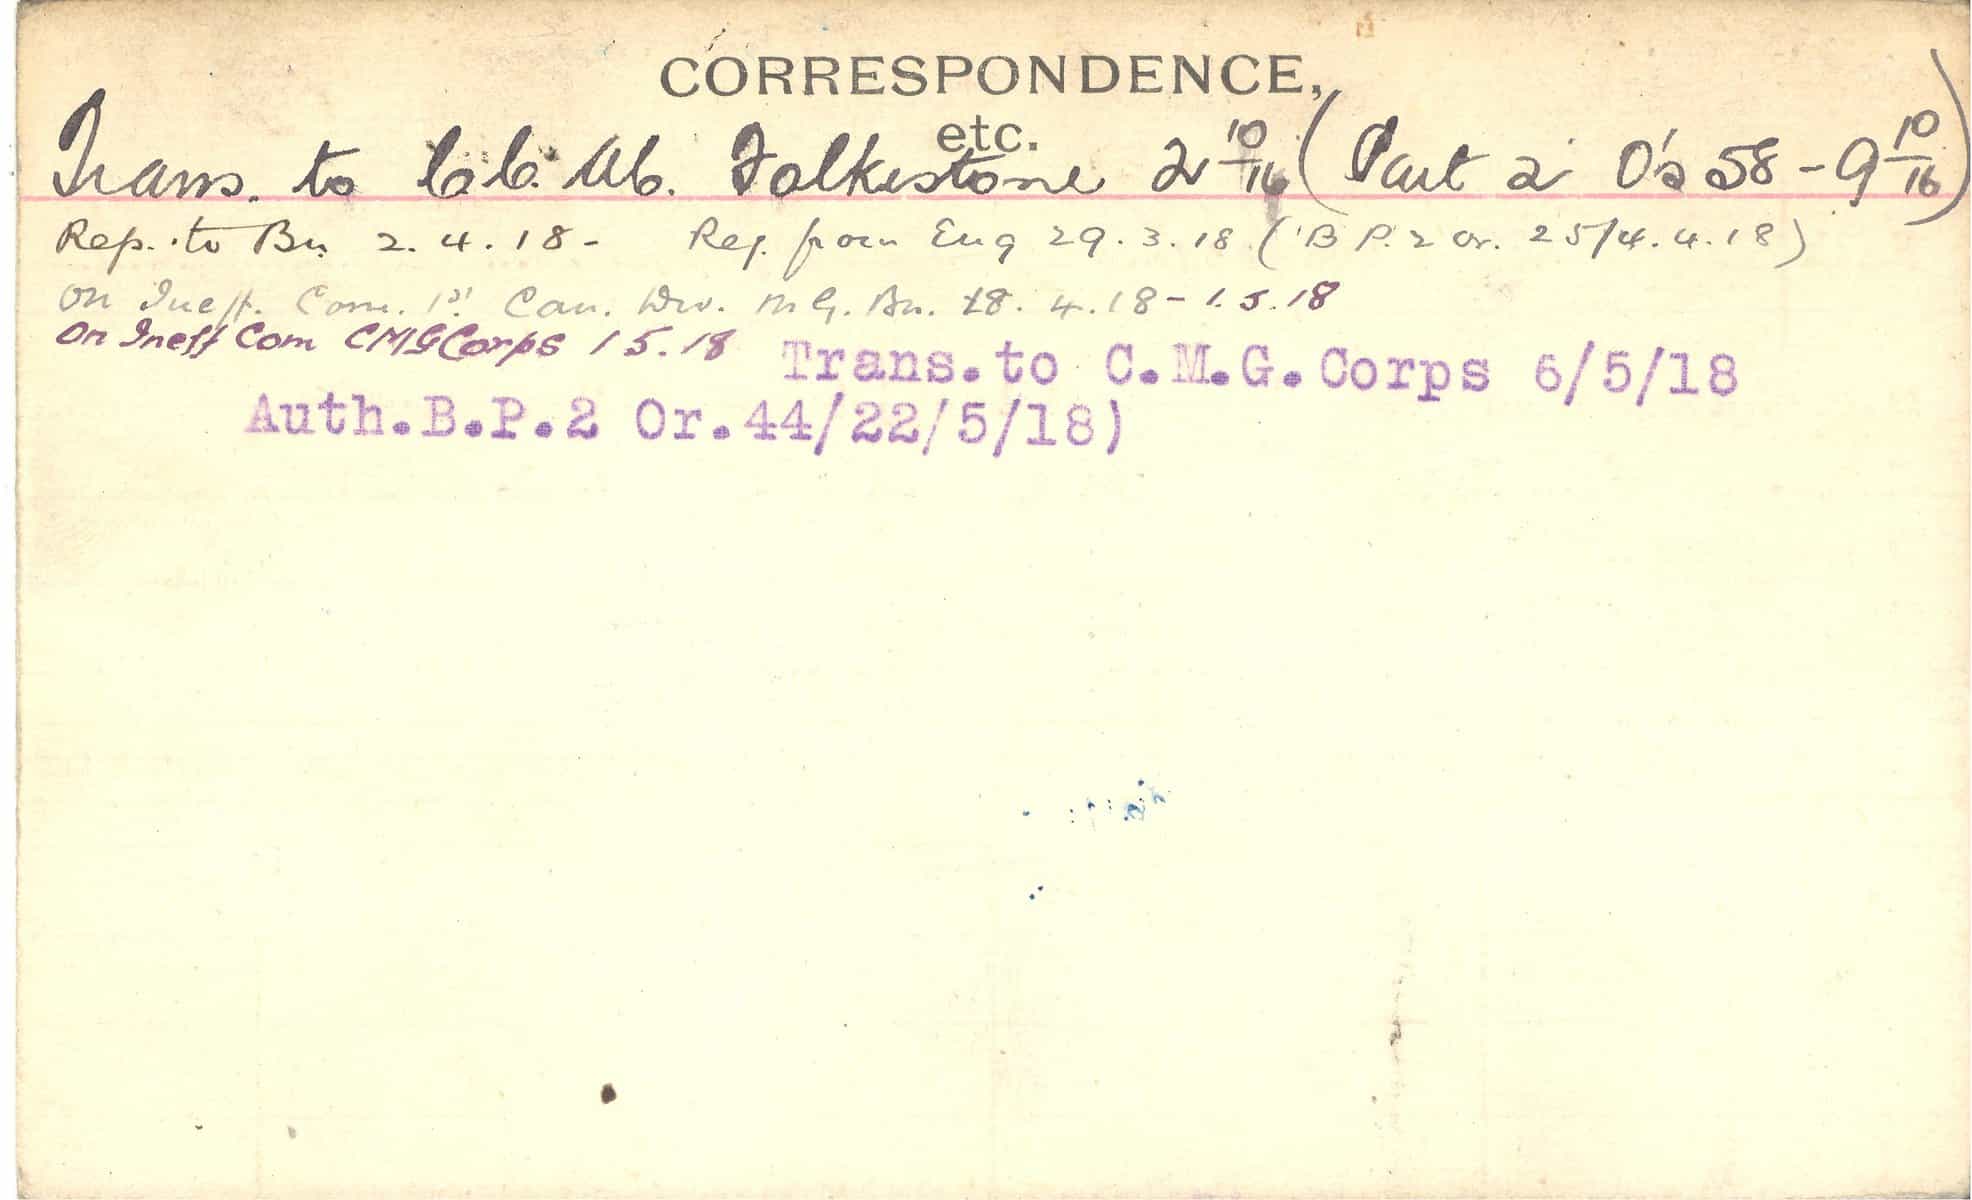 CORRESPONDENCE,
etc.
Trans. to C.C. Ab. Folkestone 2 10/16 (Part 2 O's 58 - 9 10/16)
Rep. to Bn 2.4.18 - Rej. from Eng 29.3.18 (B P.2 Or. 25/4.4.18)
On Ineff. Com. 1st Can. Div. M.G. Bn. 18. 4.18 - 1.5.18
On Ineff Com CMGCorps 1 5.18
Trans.to C.M.G.Corps 6/5/18
Auth.B.P.2 Or.44/22/5/18)